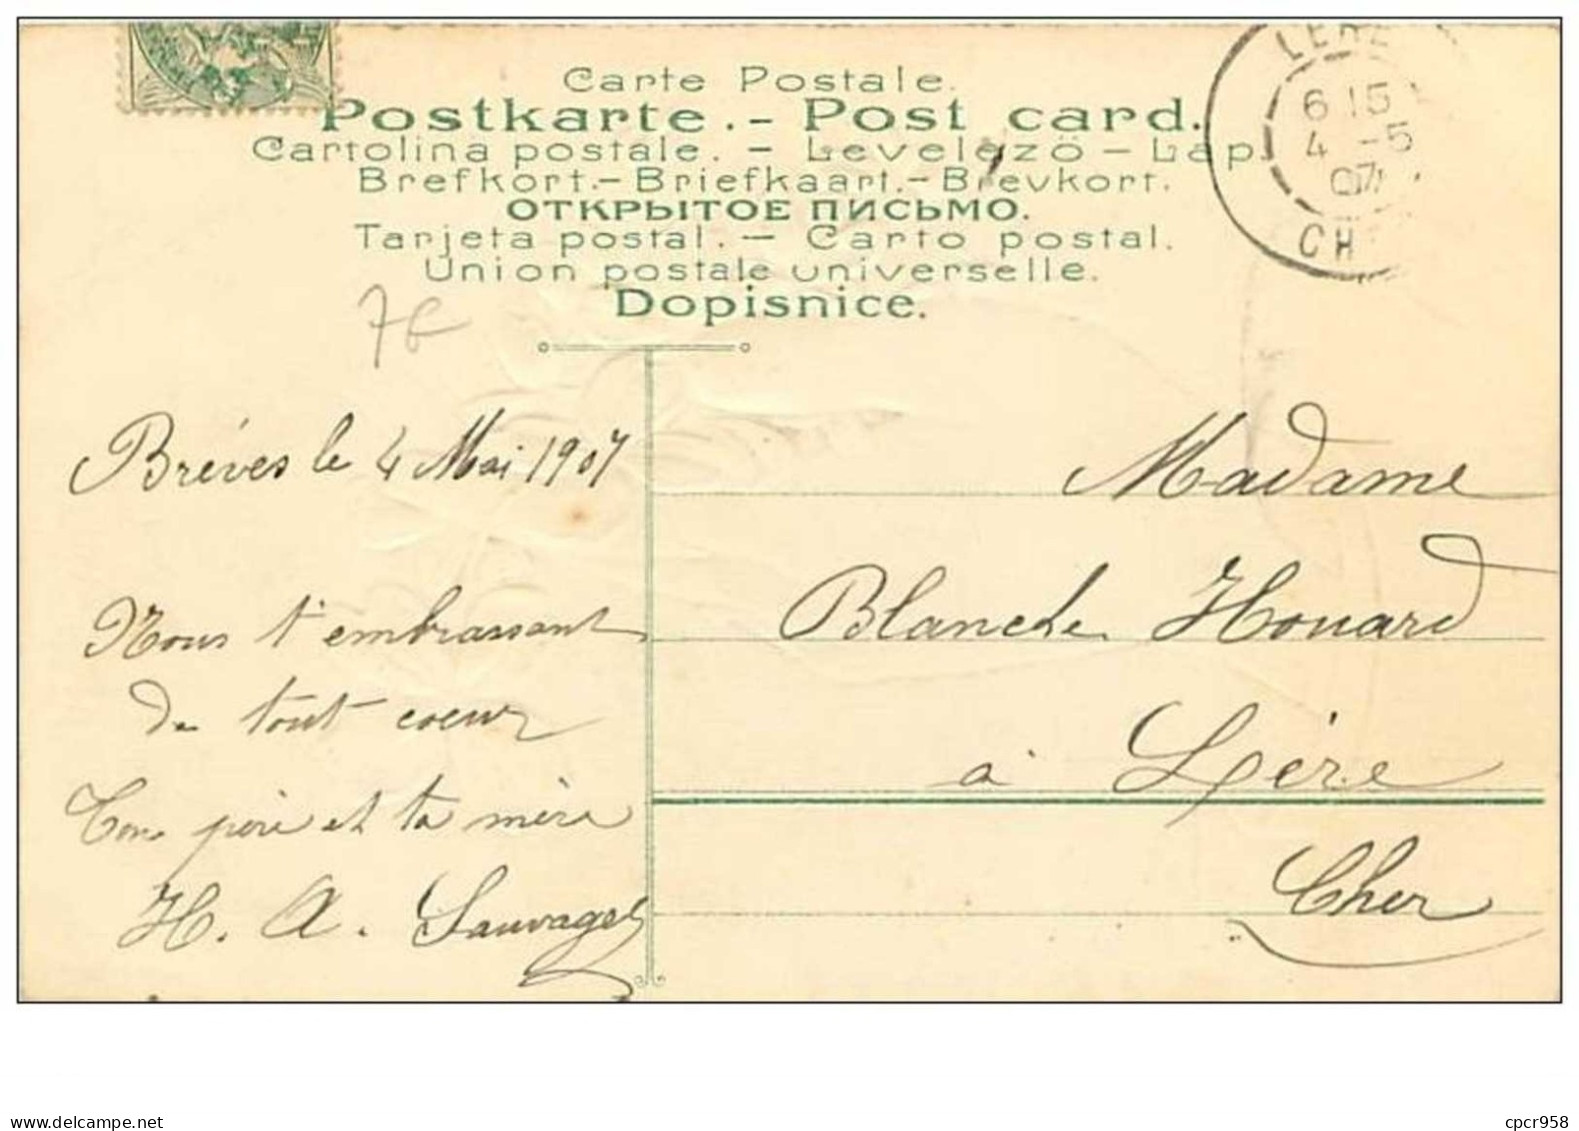 Carte Postale.
Postkarte. - Post card.
Cartolina postale. - Levelező - Lap.
Brefkort. - Briefkaart. - Brevkort.
ОТКРЫТОЕ ПИСЬМО.
Tarjeta postal. - Carto postal.
Union postale universelle.
Dopisnice.
LERE
6 15
4 -5
07
CH
7€
Brèves le 4 Mai 1907
Nous t'embrassont
de tout coeur
Ton père et ta mère
H. A. Sauvaget
Madame
Blanche Houard
à Lère
Cher
www.delcampe.net
cpcr958